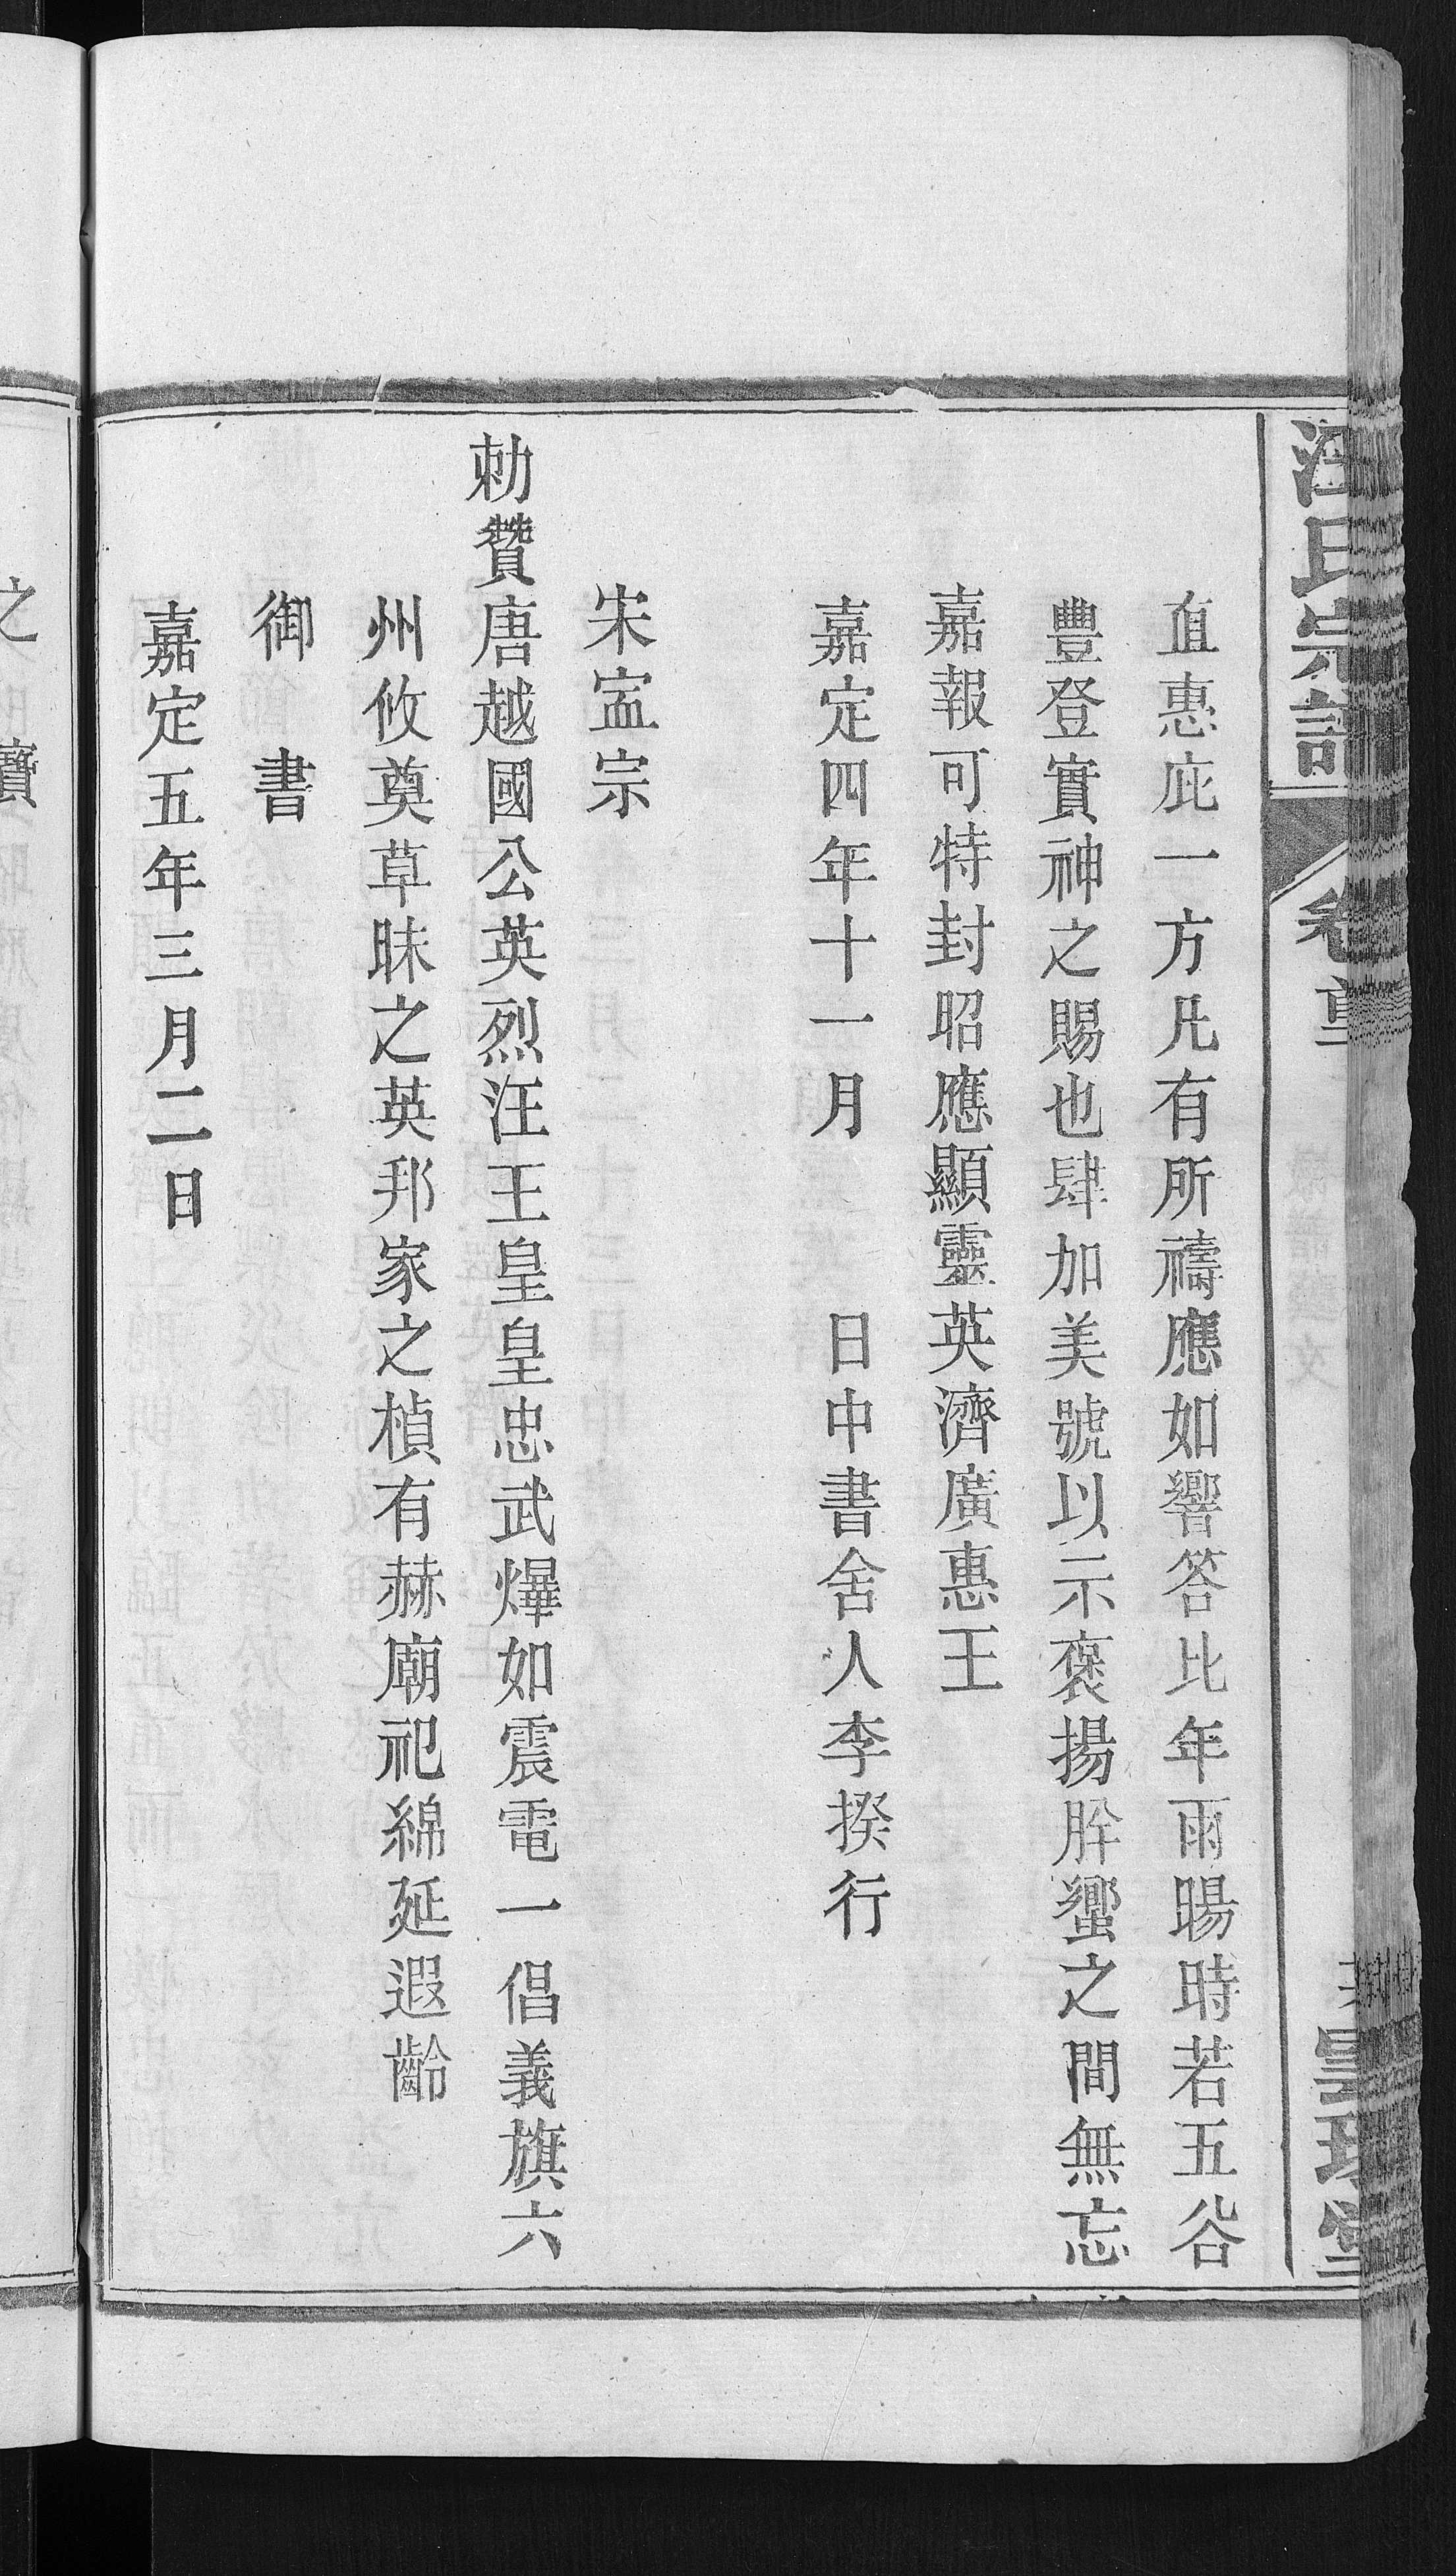 汪氏宗譜
卷首
直惠庇一方凡有所禱應如響答比年雨暘時若五谷
豐登實神之賜也肆加美號以示褒揚肸蠁之間無忘
嘉報可特封昭應顯靈英濟廣惠王
嘉定四年十一月 日中書舍人李揆行
宋寍宗
勅贊唐越國公英烈汪王皇皇忠武爗如震電一倡義旗六
州攸奠草昧之英邦家之楨有赫廟祀綿延遐齡
御 書
嘉定五年三月二日
之 寶